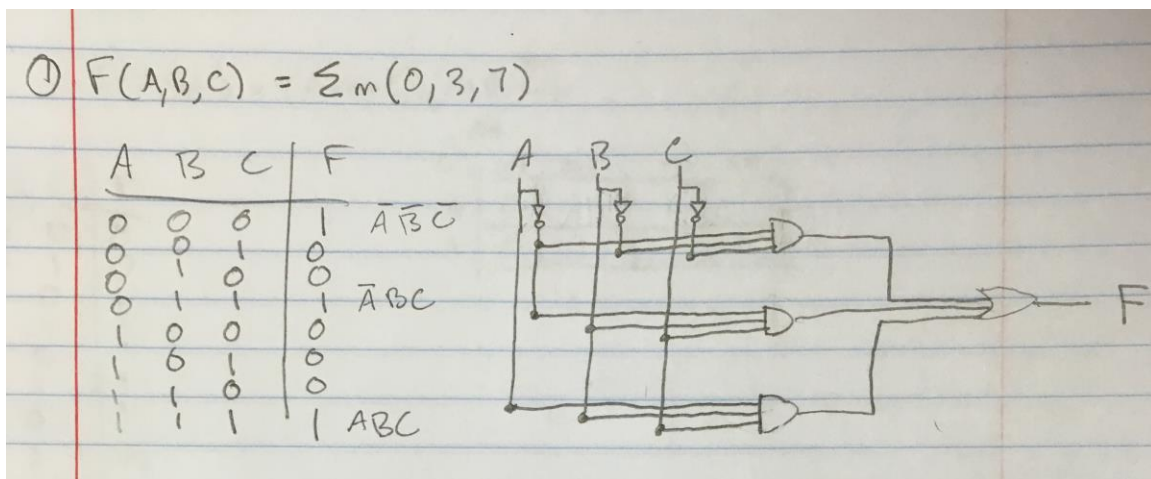 ① F(A,B,C) = Σm(0,3,7)
A B C F
0 0 0 1 A̅ B̅ C̅
0 0 1 0
0 1 0 0
0 1 1 1 A̅ B C
1 0 0 0
1 0 1 0
1 1 0 0
1 1 1 1 ABC
A B C
F